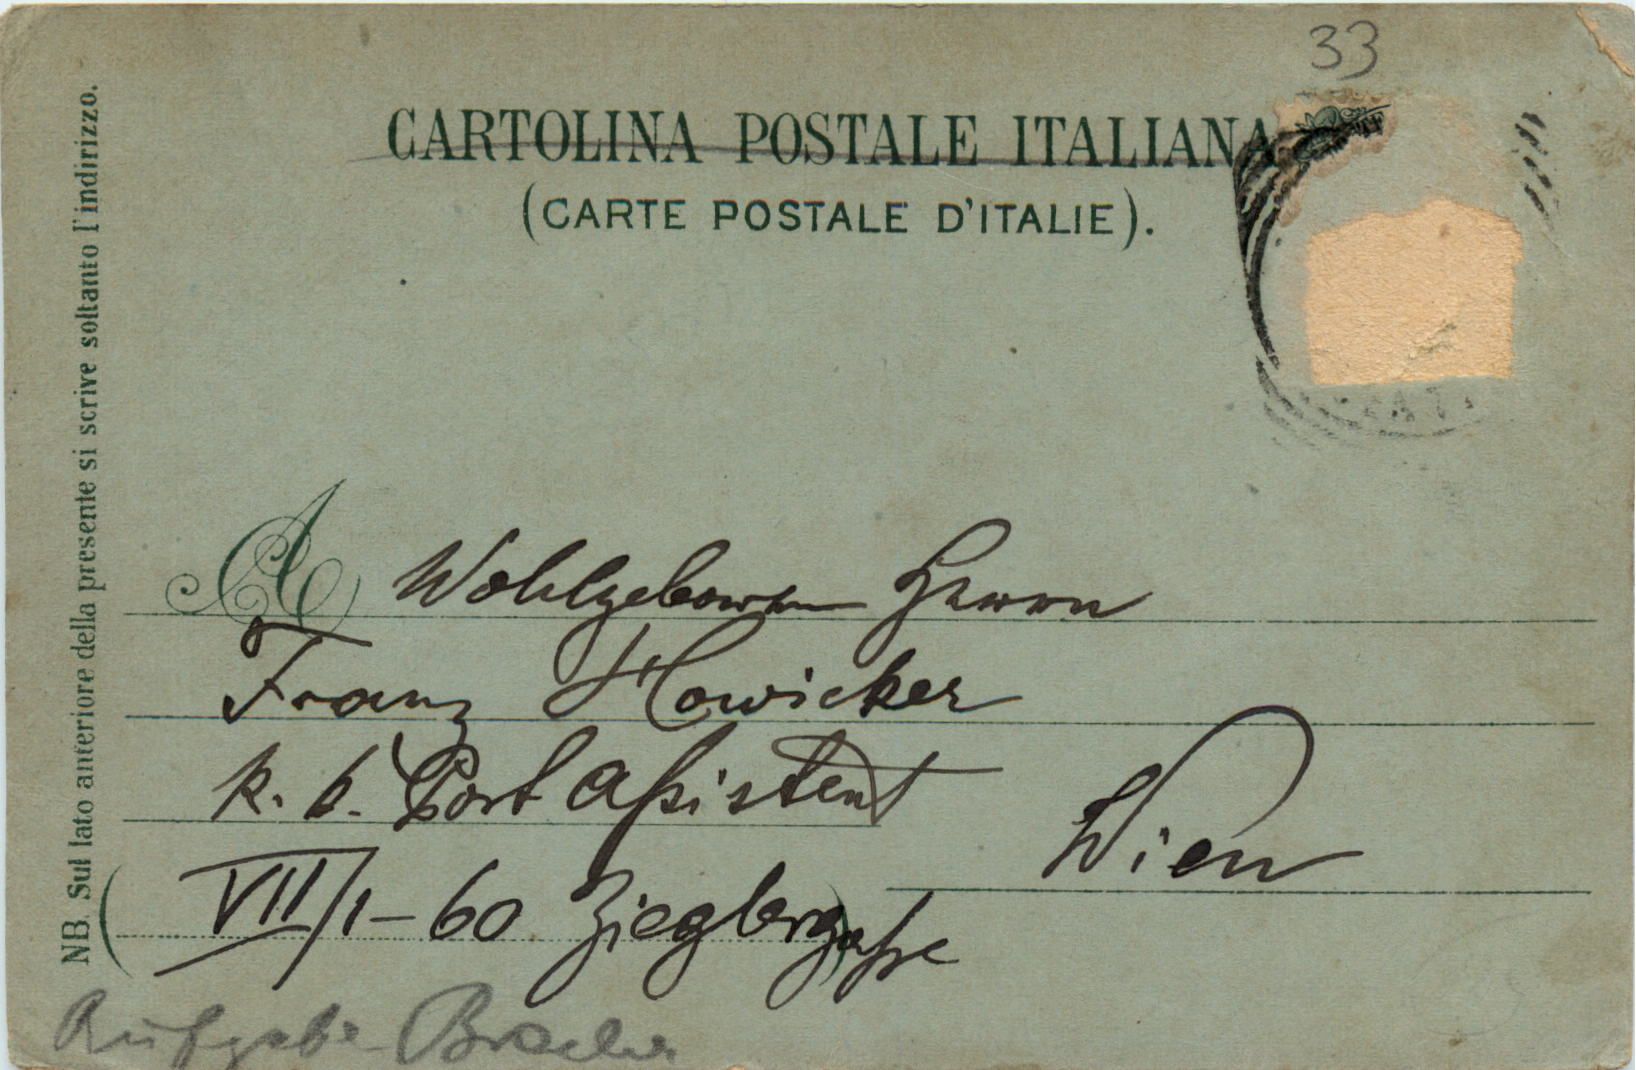 33
CARTOLINA POSTALE ITALIANA
(CARTE POSTALE D'ITALIE).
NB. Sul lato anteriore della presente si scrive soltanto l'indirizzo.
A Wohlgeboren Herrn
Franz Howicker
k. k. Post Assistent
Wien
VII/1-60 Zieglergasse